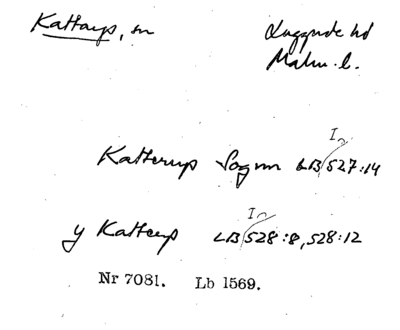 Kattarp, sn
Luggude hd
Malm. l.
Katterup Sogn LB I 527:14
y Katterup LB I 528:8, 528:12
Nr 7081. Lb 1569.